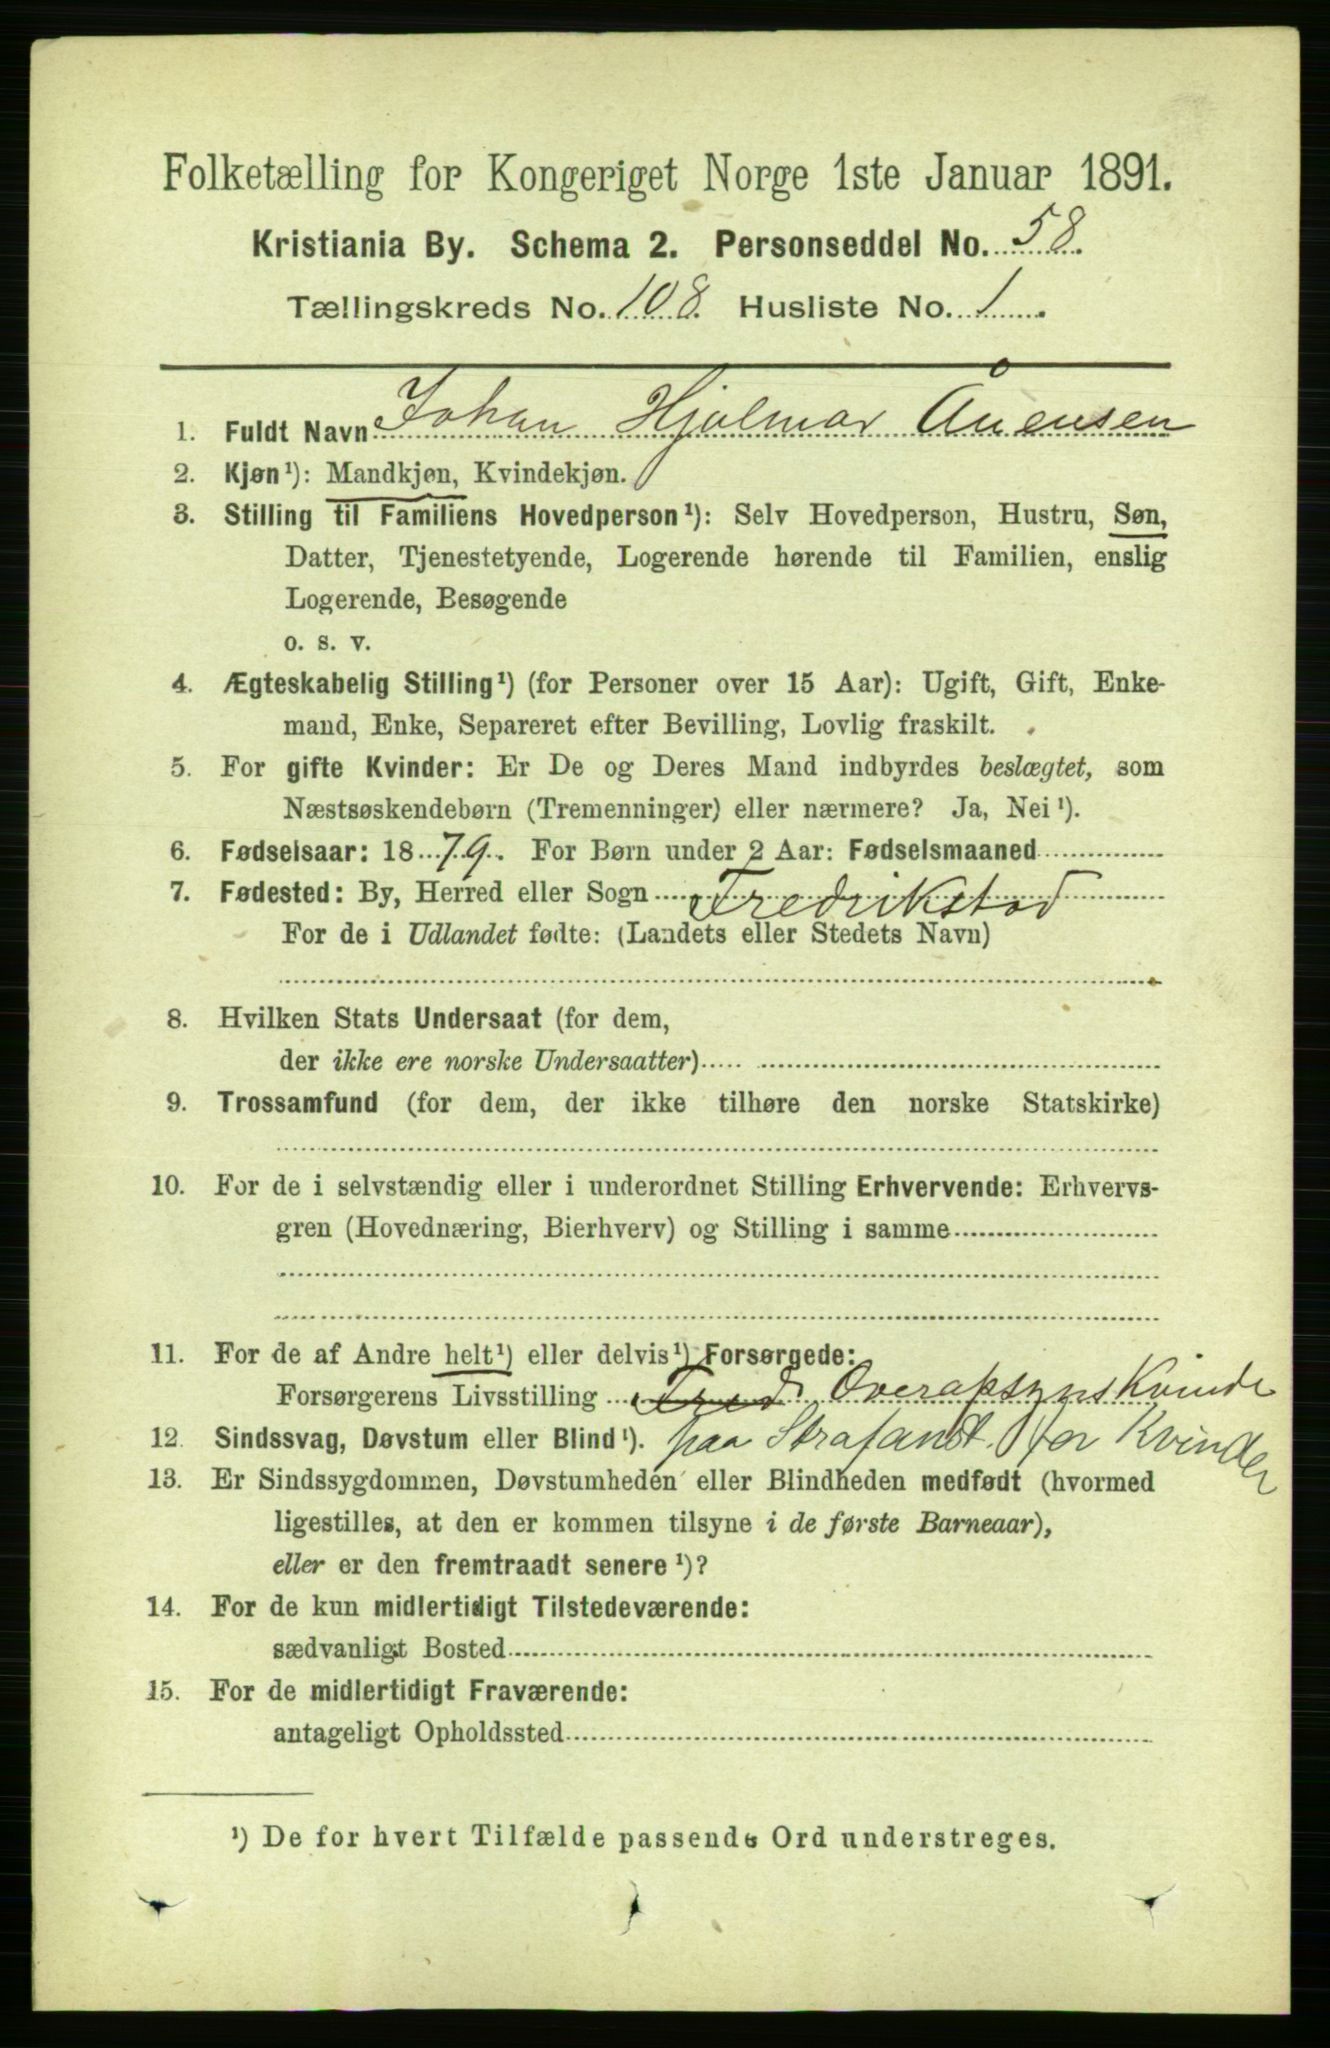 Folketælling for Kongeriget Norge 1ste Januar 1891.
Kristiania By. Schema 2. Personseddel No. 58.
Tællingskreds No. 108. Husliste No. 1.
1. Fuldt Navn Johan Hjalmar
2. Kjøn¹): Mandkjøn, Kvindekjøn.
3. Stilling til Familiens Hovedperson¹): Selv Hovedperson, Hustru, Søn,
Datter, Tjenestetyende, Logerende hørende til Familien, enslig
Logerende, Besøgende
o. s. v.
4. Ægteskabelig Stilling¹) (for Personer over 15 Aar): Ugift, Gift, Enke-
mand, Enke, Separeret efter Bevilling, Lovlig fraskilt.
5. For gifte Kvinder: Er De og Deres Mand indbyrdes beslægtet, som
Næstsøskendebørn (Tremenninger) eller nærmere? Ja, Nei¹).
6. Fødselsaar: 1879. For Børn under 2 Aar: Fødselsmaaned
7. Fødested: By, Herred eller Sogn Fredrikstad
For de i Udlandet fødte: (Landets eller Stedets Navn)
8. Hvilken Stats Undersaat (for dem,
der ikke ere norske Undersaatter)
9. Trossamfund (for dem, der ikke tilhøre den norske Statskirke)
10. For de i selvstændig eller i underordnet Stilling Erhvervende: Erhvervs-
gren (Hovednæring, Bierhverv) og Stilling i samme
11. For de af Andre helt¹) eller delvis¹) Forsørgede:
Forsørgerens Livsstilling Fred Overopsynskvinde
12. Sindssvag, Døvstum eller Blind¹). paa Strafanst. for Kvinder
13. Er Sindssygdommen, Døvstumheden eller Blindheden medfødt (hvormed
ligestilles, at den er kommen tilsyne i de første Barneaar),
eller er den fremtraadt senere¹)?
14. For de kun midlertidigt Tilstedeværende:
sædvanligt Bosted
15. For de midlertidigt Fraværende:
antageligt Opholdssted
¹) De for hvert Tilfælde passende Ord understreges.